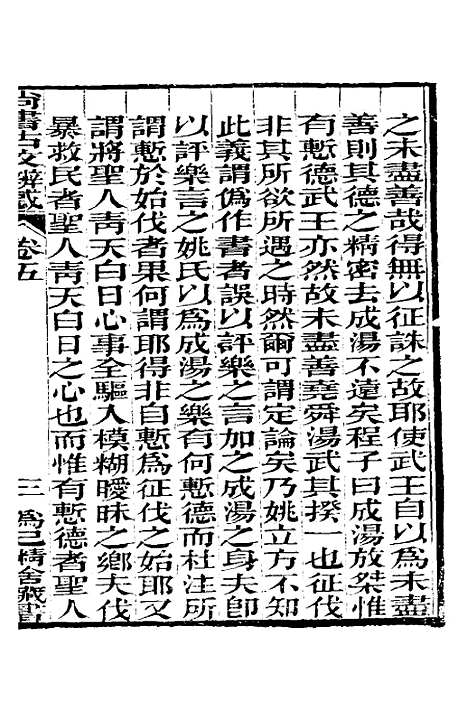 之未盡善哉得無以征誅之故耶使武王自以爲未盡
善則其德之精密去成湯不遠矣程子曰成湯放桀惟
有慙德武王亦然故未盡善堯舜湯武其揆一也征伐
非其所欲所遇之時然爾可謂定論矣乃姚立方不知
此義謂僞作書者誤以評樂之言加之成湯之身夫卽
以評樂言之姚氏以爲成湯之樂有何慙德而杜注所
謂慙於始伐者果何謂耶得非自慙爲征伐之始耶又
謂將聖人靑天白日心事全驅入模糊曖昧之鄉夫伐
暴救民者聖人靑天白日之心也而惟有慙德者聖人
尙書古文辨惑 卷五 三 爲己精舍藏書